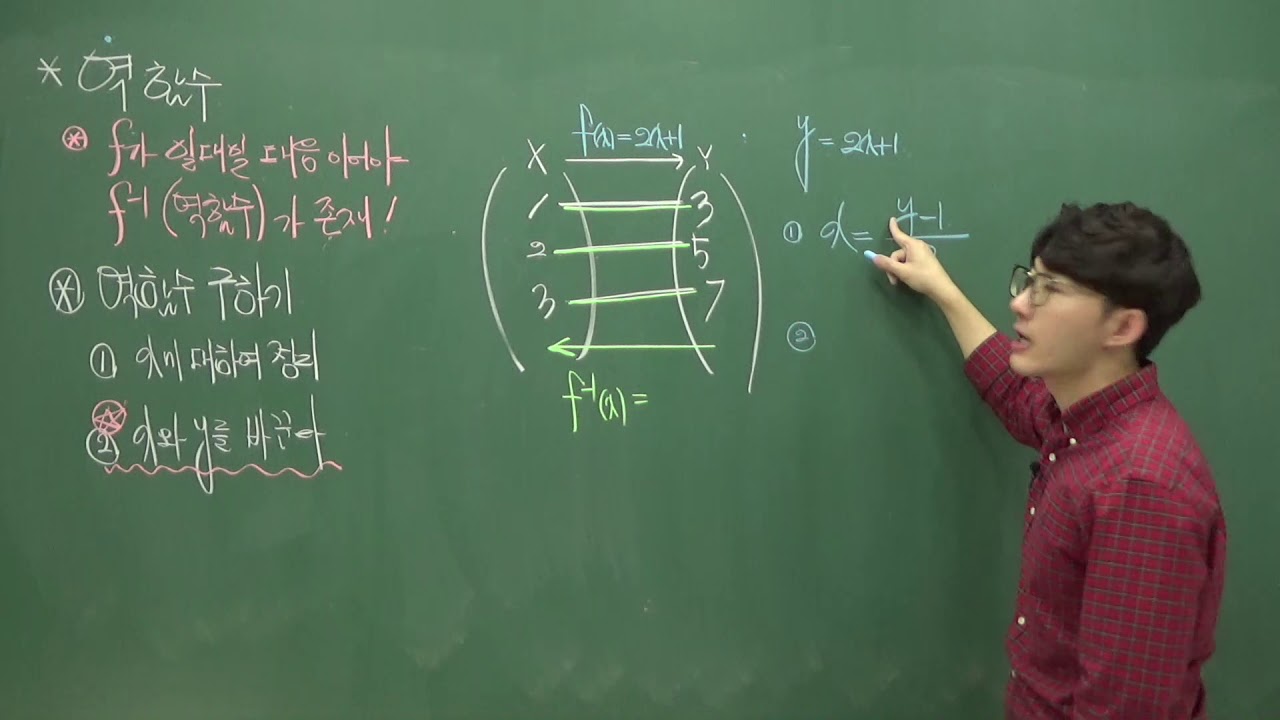 * 역함수
⊛ f가 일대일 대응 이어야
f⁻¹ (역함수)가 존재!
⊛ 역함수 구하기
① x에 대하여 정리
② x와 y를 바꾼다
f(x)=2x+1
X Y
1 3
2 5
3 7
f⁻¹(x)=
: y=2x+1
① x= y-1
②